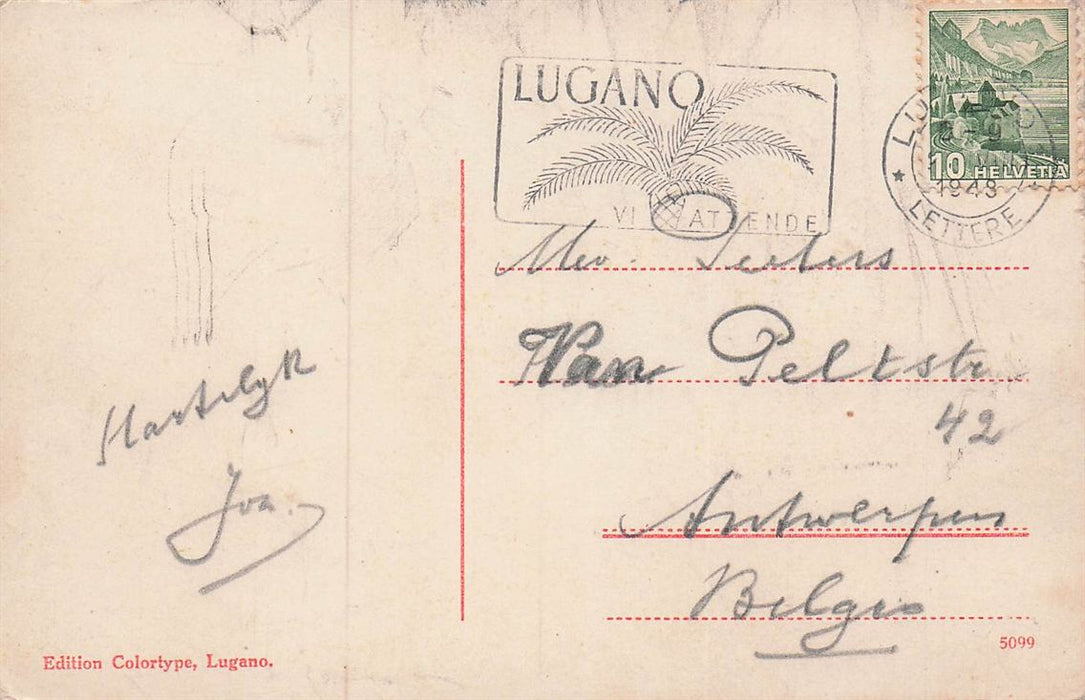 LUGANO
VI ATTENDE
10 HELVETIA
1948
LETTERE
Mev. Peeters
Van Peltstr
42
Antwerpen
Belgie
Hartelyk
Iva.
Edition Colortype, Lugano.
5099